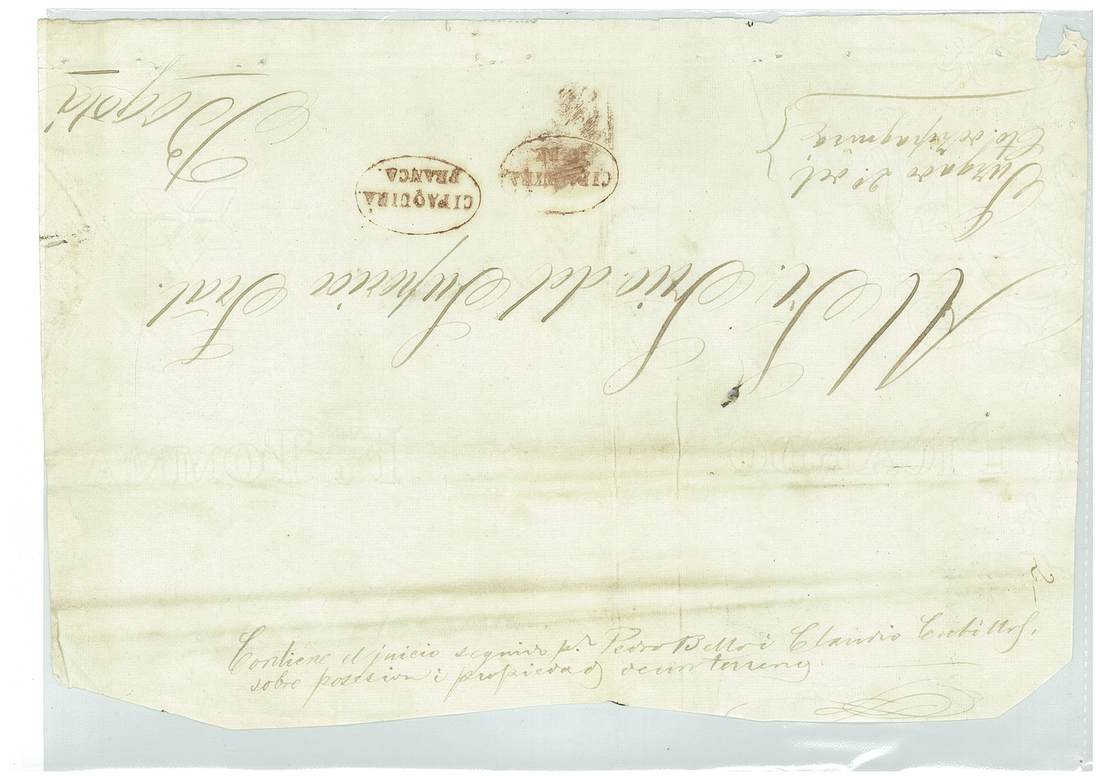 Juzgado 2º del
Cto. de Zipaquirá
CIPAQUIRÁ
DE
CIPAQUIRÁ
FRANCA.
Al Sr. Srio. del Superior Tral.
Bogotá
Contiene el juicio seguido pr. Pedro Bello i Claudio Cubillos,
sobre posesion i propiedad de un terreno